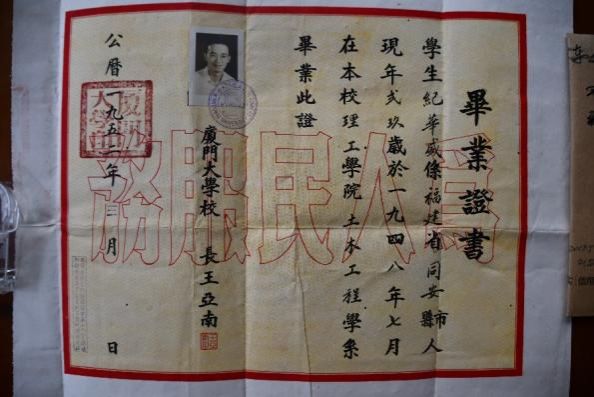 畢業證書
學生紀華盛係福建省同安市縣人
現年弍玖歲於一九四八年七月
在本校理工學院土木工程學系
畢業此證
廈門大學校長王亞南
公曆一九五一年三月 日
為人民服務